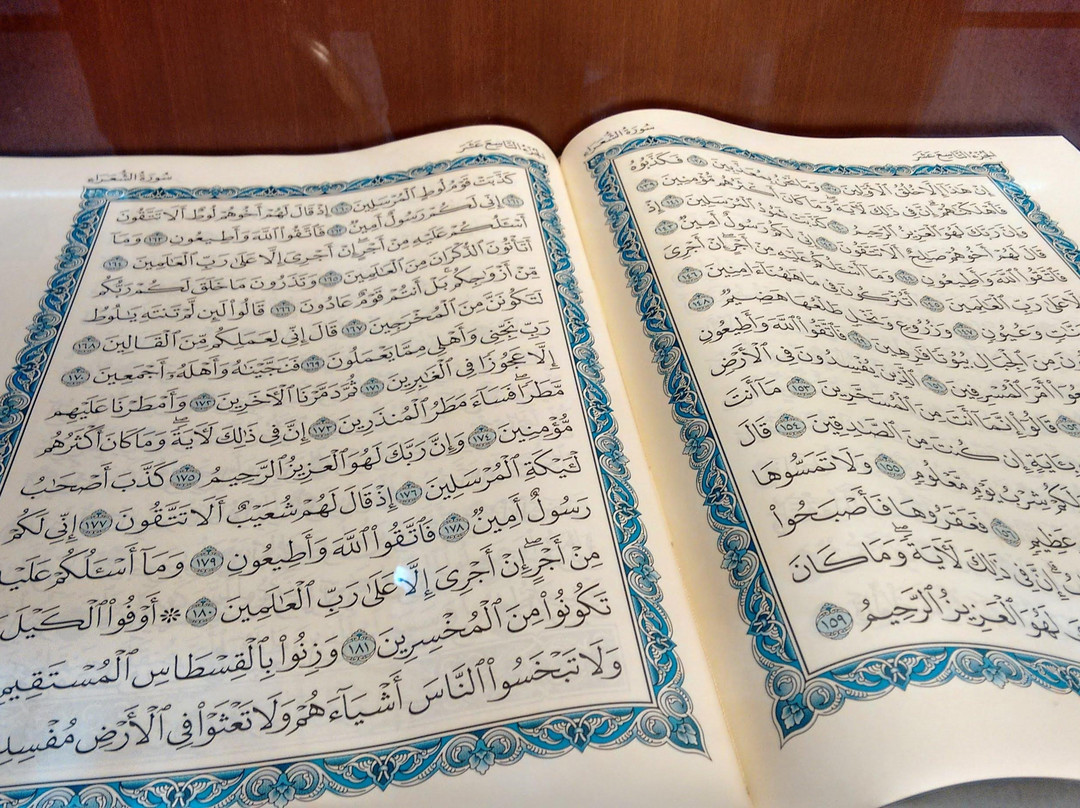 الجزء التاسع عشر
سُورَةُ الشُّعَرَاءِ
إِنْ هَٰذَا إِلَّا خُلُقُ الْأَوَّلِينَ ١٣٧ وَمَا نَحْنُ بِمُعَذَّبِينَ ١٣٨ فَكَذَّبُوهُ
فَأَهْلَكْنَاهُمْ إِنَّ فِي ذَٰلِكَ لَآيَةً وَمَا كَانَ أَكْثَرُهُم مُّؤْمِنِينَ ١٣٩
وَإِنَّ رَبَّكَ لَهُوَ الْعَزِيزُ الرَّحِيمُ ١٤٠ كَذَّبَتْ ثَمُودُ الْمُرْسَلِينَ ١٤١ إِذْ
قَالَ لَهُمْ أَخُوهُمْ صَالِحٌ أَلَا تَتَّقُونَ ١٤٢ إِنِّي لَكُمْ رَسُولٌ أَمِينٌ ١٤٣
فَاتَّقُوا اللَّهَ وَأَطِيعُونِ ١٤٤ وَمَا أَسْأَلُكُمْ عَلَيْهِ مِنْ أَجْرٍ إِنْ أَجْرِيَ
إِلَّا عَلَىٰ رَبِّ الْعَالَمِينَ ١٤٥ أَتُتْرَكُونَ فِي مَا هَاهُنَا آمِنِينَ ١٤٦
جَنَّاتٍ وَعُيُونٍ ١٤٧ وَزُرُوعٍ وَنَخْلٍ طَلْعُهَا هَضِيمٌ ١٤٨
مِنَ الْجِبَالِ بُيُوتًا فَارِهِينَ ١٤٩ فَاتَّقُوا اللَّهَ وَأَطِيعُونِ
أَمْرَ الْمُسْرِفِينَ ١٥١ الَّذِينَ يُفْسِدُونَ فِي الْأَرْضِ
١٥٢ قَالُوا إِنَّمَا أَنتَ مِنَ الْمُسَحَّرِينَ ١٥٣ مَا أَنتَ
بِآيَةٍ إِن كُنتَ مِنَ الصَّادِقِينَ ١٥٤ قَالَ
وَلَكُمْ شِرْبُ يَوْمٍ مَّعْلُومٍ ١٥٥ وَلَا تَمَسُّوهَا
عَظِيمٍ ١٥٦ فَعَقَرُوهَا فَأَصْبَحُوا
إِنَّ فِي ذَٰلِكَ لَآيَةً وَمَا كَانَ
لَهُوَ الْعَزِيزُ الرَّحِيمُ ١٥٩
الجزء التاسع عشر
سُورَةُ الشُّعَرَاءِ
كَذَّبَتْ قَوْمُ لُوطٍ الْمُرْسَلِينَ ١٦٠ إِذْ قَالَ لَهُمْ أَخُوهُمْ لُوطٌ أَلَا تَتَّقُونَ
١٦١ إِنِّي لَكُمْ رَسُولٌ أَمِينٌ ١٦٢ فَاتَّقُوا اللَّهَ وَأَطِيعُونِ ١٦٣ وَمَا
أَسْأَلُكُمْ عَلَيْهِ مِنْ أَجْرٍ إِنْ أَجْرِيَ إِلَّا عَلَىٰ رَبِّ الْعَالَمِينَ ١٦٤
أَتَأْتُونَ الذُّكْرَانَ مِنَ الْعَالَمِينَ ١٦٥ وَتَذَرُونَ مَا خَلَقَ لَكُمْ رَبُّكُم
مِّنْ أَزْوَاجِكُم بَلْ أَنتُمْ قَوْمٌ عَادُونَ ١٦٦ قَالُوا لَئِن لَّمْ تَنتَهِ يَا لُوطُ
لَتَكُونَنَّ مِنَ الْمُخْرَجِينَ ١٦٧ قَالَ إِنِّي لِعَمَلِكُم مِّنَ الْقَالِينَ ١٦٨
رَبِّ نَجِّنِي وَأَهْلِي مِمَّا يَعْمَلُونَ ١٦٩ فَنَجَّيْنَاهُ وَأَهْلَهُ أَجْمَعِينَ ١٧٠
إِلَّا عَجُوزًا فِي الْغَابِرِينَ ١٧١ ثُمَّ دَمَّرْنَا الْآخَرِينَ ١٧٢ وَأَمْطَرْنَا عَلَيْهِم
مَّطَرًا فَسَاءَ مَطَرُ الْمُنذَرِينَ ١٧٣ إِنَّ فِي ذَٰلِكَ لَآيَةً وَمَا كَانَ أَكْثَرُهُم
مُّؤْمِنِينَ ١٧٤ وَإِنَّ رَبَّكَ لَهُوَ الْعَزِيزُ الرَّحِيمُ ١٧٥ كَذَّبَ أَصْحَابُ
لْـَٔيْكَةِ الْمُرْسَلِينَ ١٧٦ إِذْ قَالَ لَهُمْ شُعَيْبٌ أَلَا تَتَّقُونَ ١٧٧ إِنِّي لَكُمْ
رَسُولٌ أَمِينٌ ١٧٨ فَاتَّقُوا اللَّهَ وَأَطِيعُونِ ١٧٩ وَمَا أَسْأَلُكُمْ عَلَيْهِ
مِنْ أَجْرٍ إِنْ أَجْرِيَ إِلَّا عَلَىٰ رَبِّ الْعَالَمِينَ ١٨٠ ۞ أَوْفُوا الْكَيْلَ
تَكُونُوا مِنَ الْمُخْسِرِينَ ١٨١ وَزِنُوا بِالْقِسْطَاسِ الْمُسْتَقِيمِ
وَلَا تَبْخَسُوا النَّاسَ أَشْيَاءَهُمْ وَلَا تَعْثَوْا فِي الْأَرْضِ مُفْسِدِ